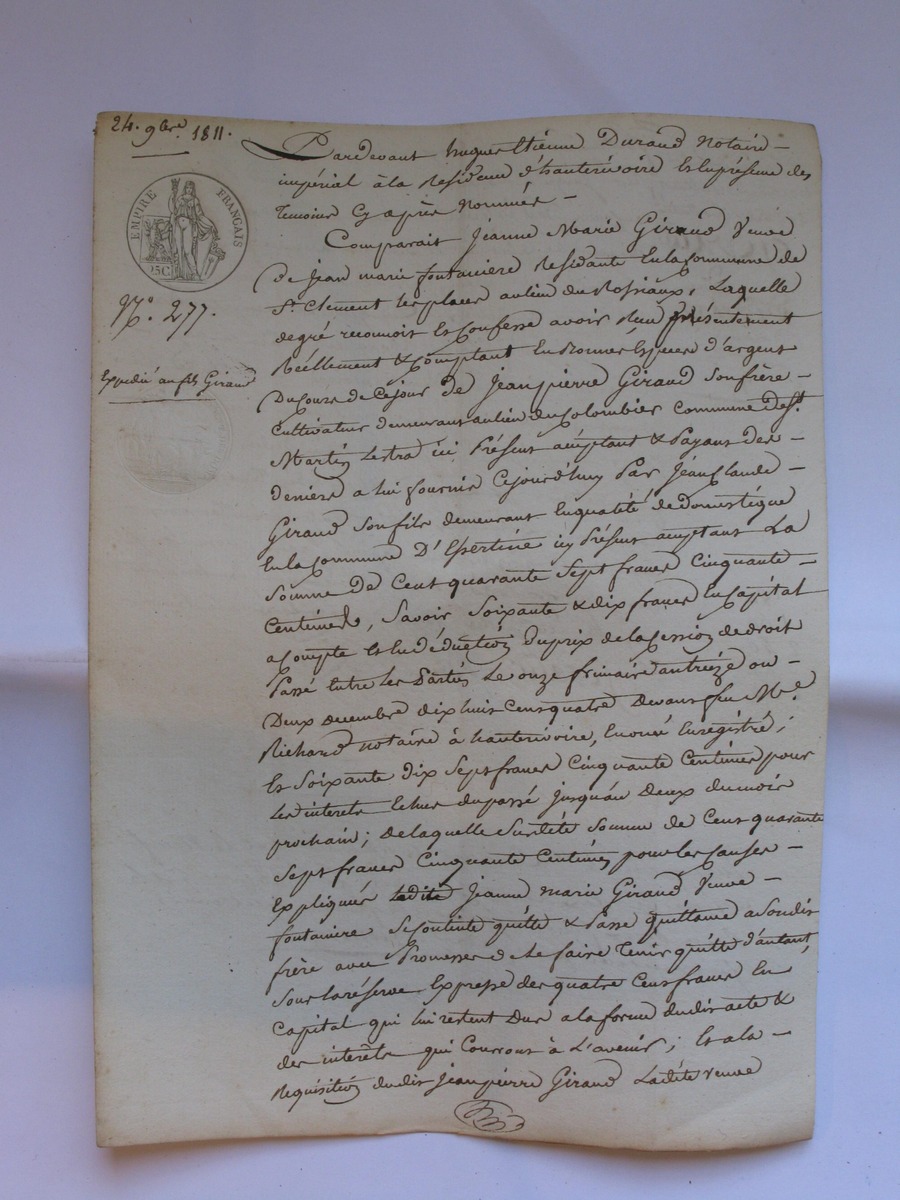 24. 9bre 1811.
EMPIRE FRANÇAIS
25C
N.° 277.
Expedié au fils Giraud
Pardevant hugues Etienne Durand Notaire
impérial à la Residence d'hauterivoire Et en présence des
Temoins Cy après Nommés
Comparait Jeanne Marie Giraud Veuve
de Jean marie fontaniere Residante En la Commune de
St. Clement les places au lieu du Rossiaux, Laquelle
de gré reconnoit Et Confesse avoir Reçu présentement
Réellement & Comptant En Bonnes Espèces d'argent
Du Cours de Ce jour De Jean pierre Giraud Son frère
Cultivateur demeurant au lieu du Colombier Commune de St.
Martin Lestra ici Présent acceptant & Payant des
deniers a lui fournis Cejourd'huy Par Jean Claude
Giraud Son fils demeurant En qualité de Domestique
En la Commune D'Essertine icy Présent acceptant La
Somme De Cent quarante Sept francs Cinquante
Centimes, Savoir Soixante & dix francs En Capital
a Compte Et En déduction Du prix de la Cession de droit
Passé Entre les Parties Le onze frimaire an treize ou
Deux decembre dix huit Cent quatre Devant feu Me.
Richard notaire à hauterivoire, Enregistré;
Et Soixante dix Sept francs Cinquante Centimes pour
Les interets Echus du passé jusqu'au deux du mois
prochain; de laquelle Susdite Somme de Cent quarante
Sept francs Cinquante Centimes pour les Causes
Expliquées Ladite Jeanne marie Giraud Veuve
fontaniere Se Contente quitte & Passe quittance a Son dit
frère avec Promesse de Le faire Tenir quitte d'autant,
Sous la réserve Expresse des quatre Cent francs En
Capital qui lui restent Dus a la forme du dit acte &
des interêts qui Courront à L'avenir; Et a la
Requisition du dit Jean pierre Giraud Ladite veuve